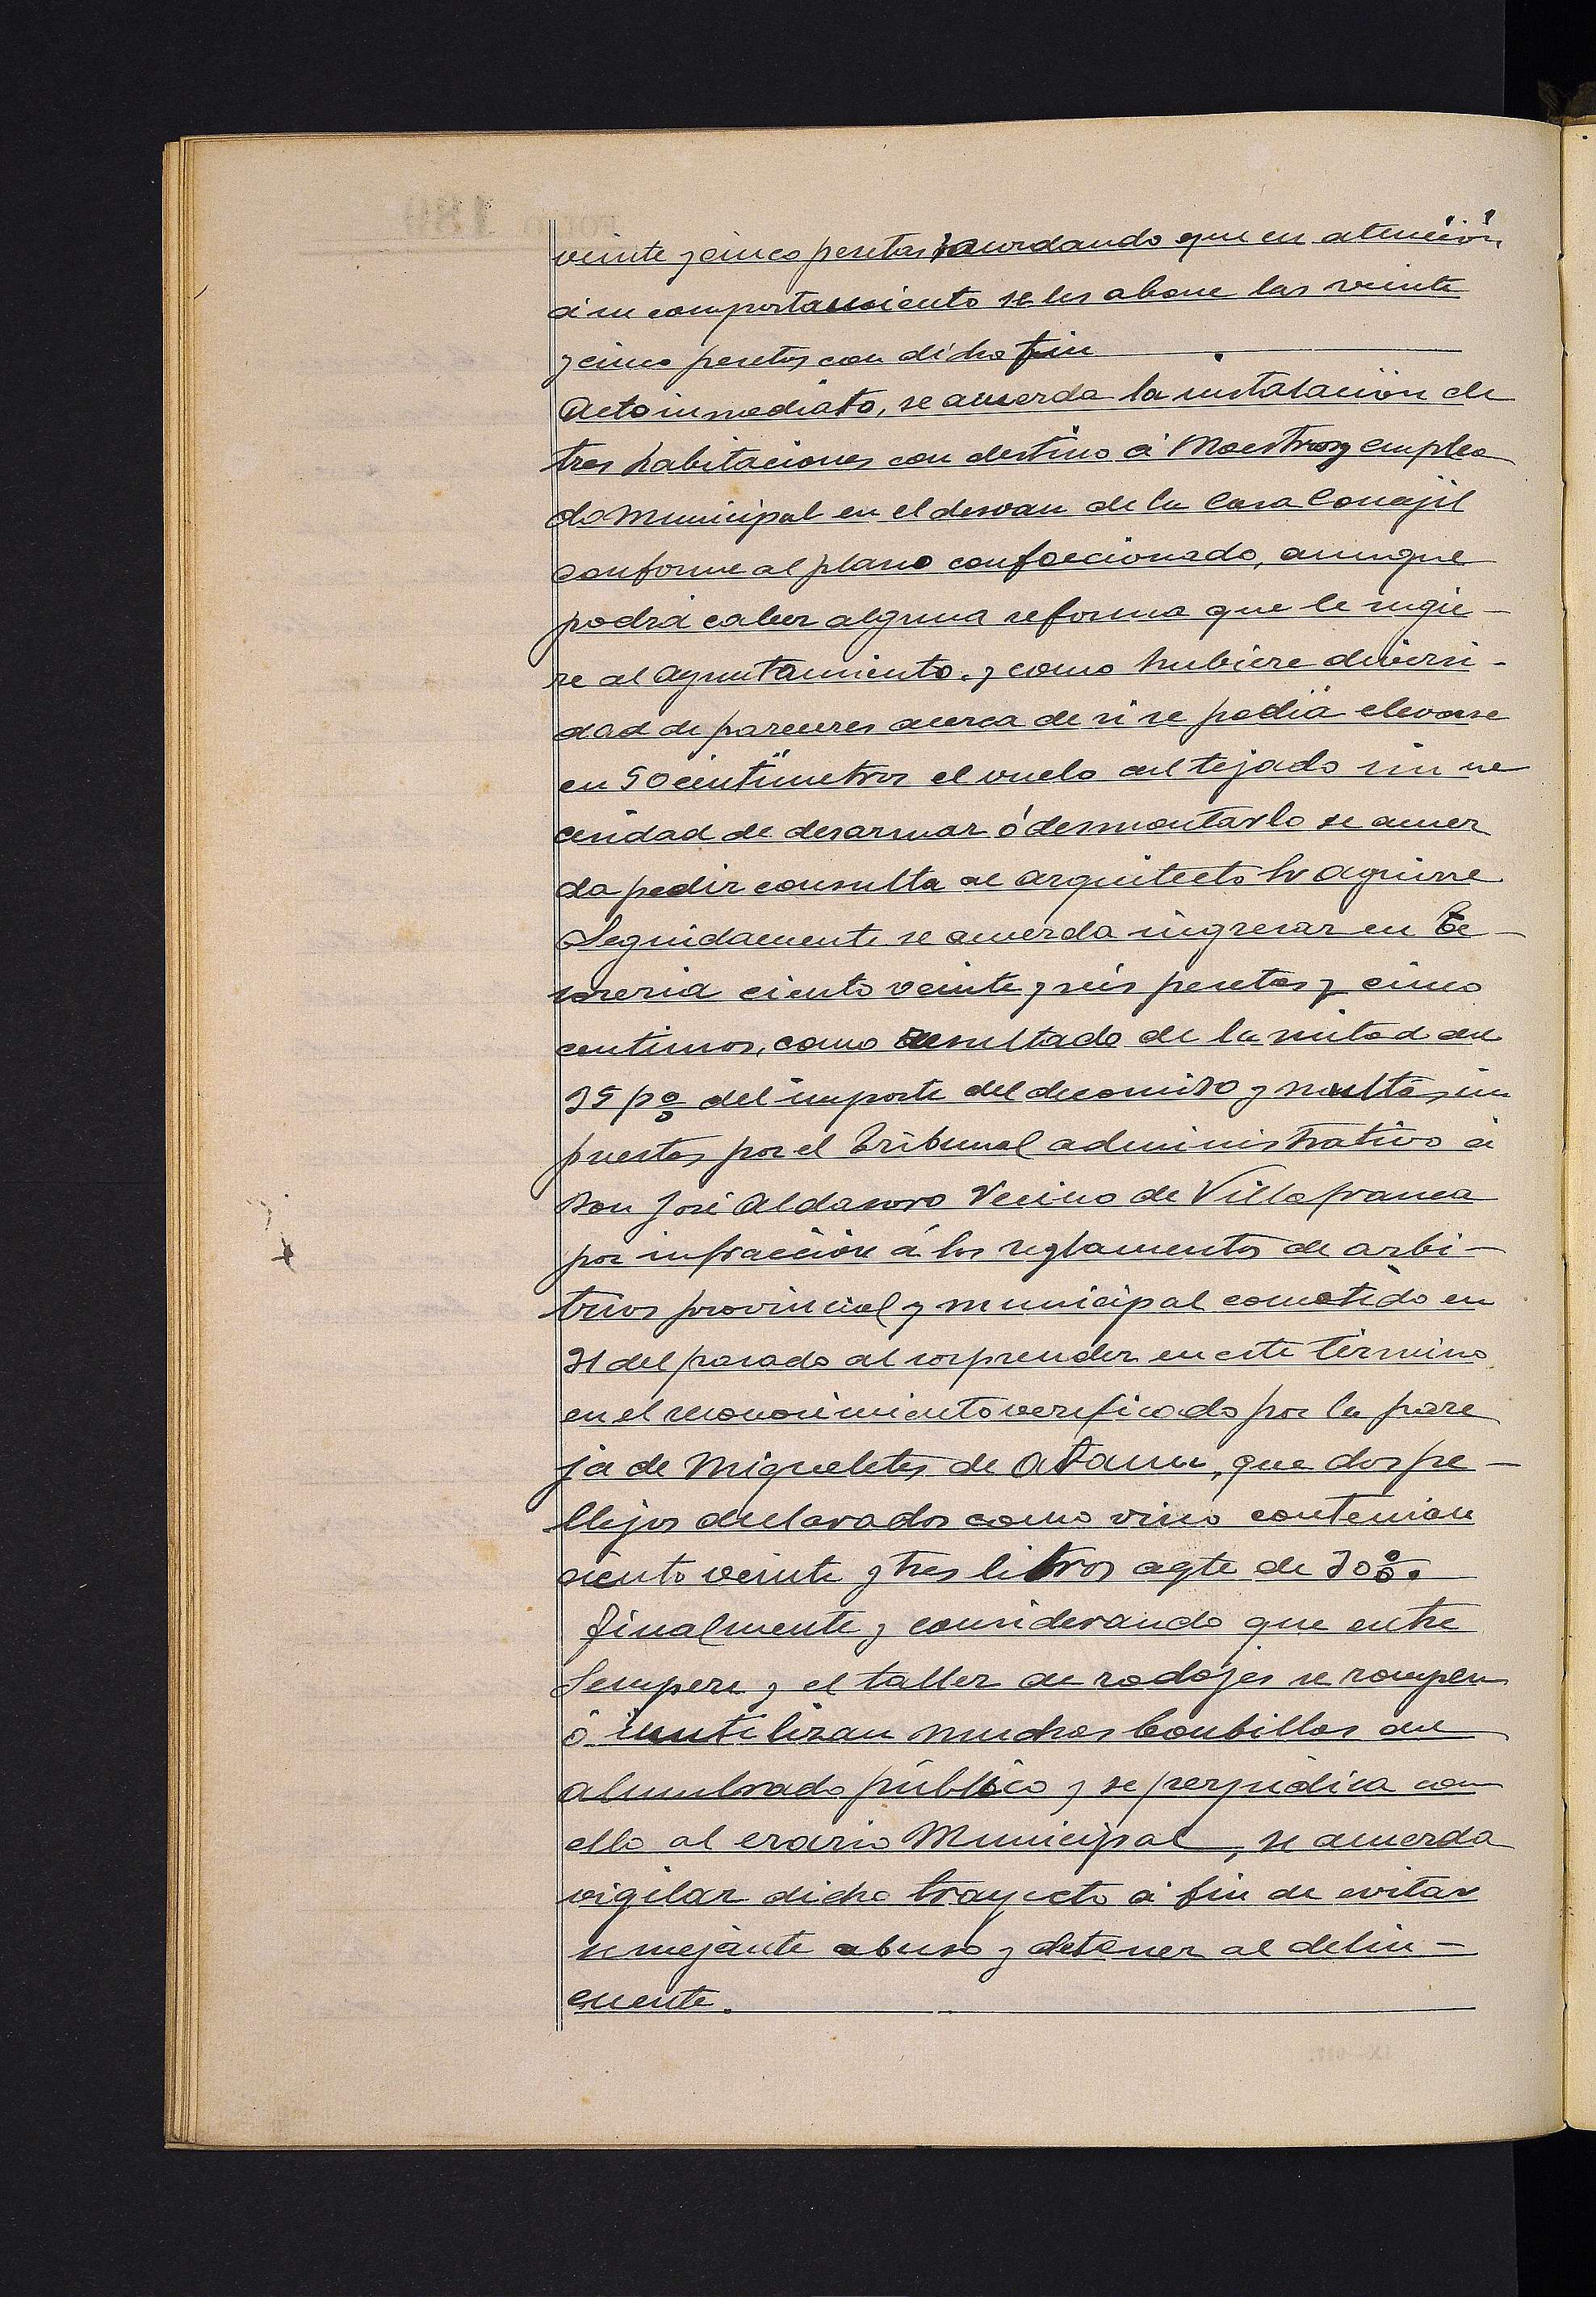 veinte y cinco pesetas acordando que en atención
á su comportamiento se les abone las veinte
y cinco pesetas con dicho fin
Acto inmediato, se acuerda la instalación de
tres habitaciones con destino á Maestros y emplea
do Municipal en el desvan de la Casa Concejil
conforme al plano confeccionado, aunque
podrá caber alguna reforma que le sugie-
re al Ayuntamiento. y como hubiere diversi-
dad de pareceres acerca de si se podia elevarse
en 50 centimetros el vuelo del tejado sin ne
cesidad de desarmar ó desmontarlo se acuer
da pedir consulta al arquitecto Sr Aguirre
Seguidamente se acuerda ingresar en Te-
soreria ciento veinte y seis pesetas y cinco
centimos, como resultado de la mitad del
35 p% del importe del decomiso y multas im
puestas por el Tribunal administrativo á
Don José Aldasoro Vecino de Villafranca
por infracción á los reglamentos de arbi-
trios provincial y municipal cometido en
31 del pasado al sorprender en este término
en el reconocimiento verificado por la pare
ja de Miqueletes de Ataun, que dos pe-
llejos declarados como vino contenian
ciento veinte y tres litros agte de 30 %.
Finalmente y considerando que entre
Sempere y el taller de rodajes se rompen
ó inutilizan muchas bombillas del
alumbrado público y se perjudica con
ello al erario Municipal, se acuerda
vigilar dicho trayecto á fin de evitar
semejante abuso y detener al delin-
cuente.